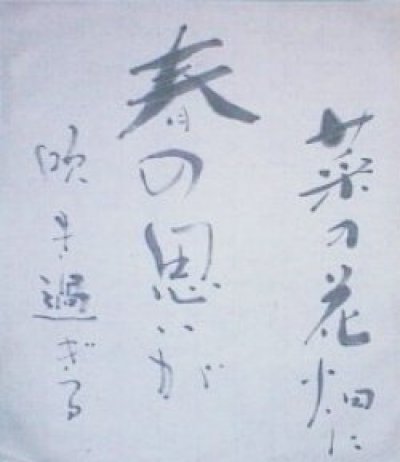 菜の花畑に
春の思いが
吹き過ぎる